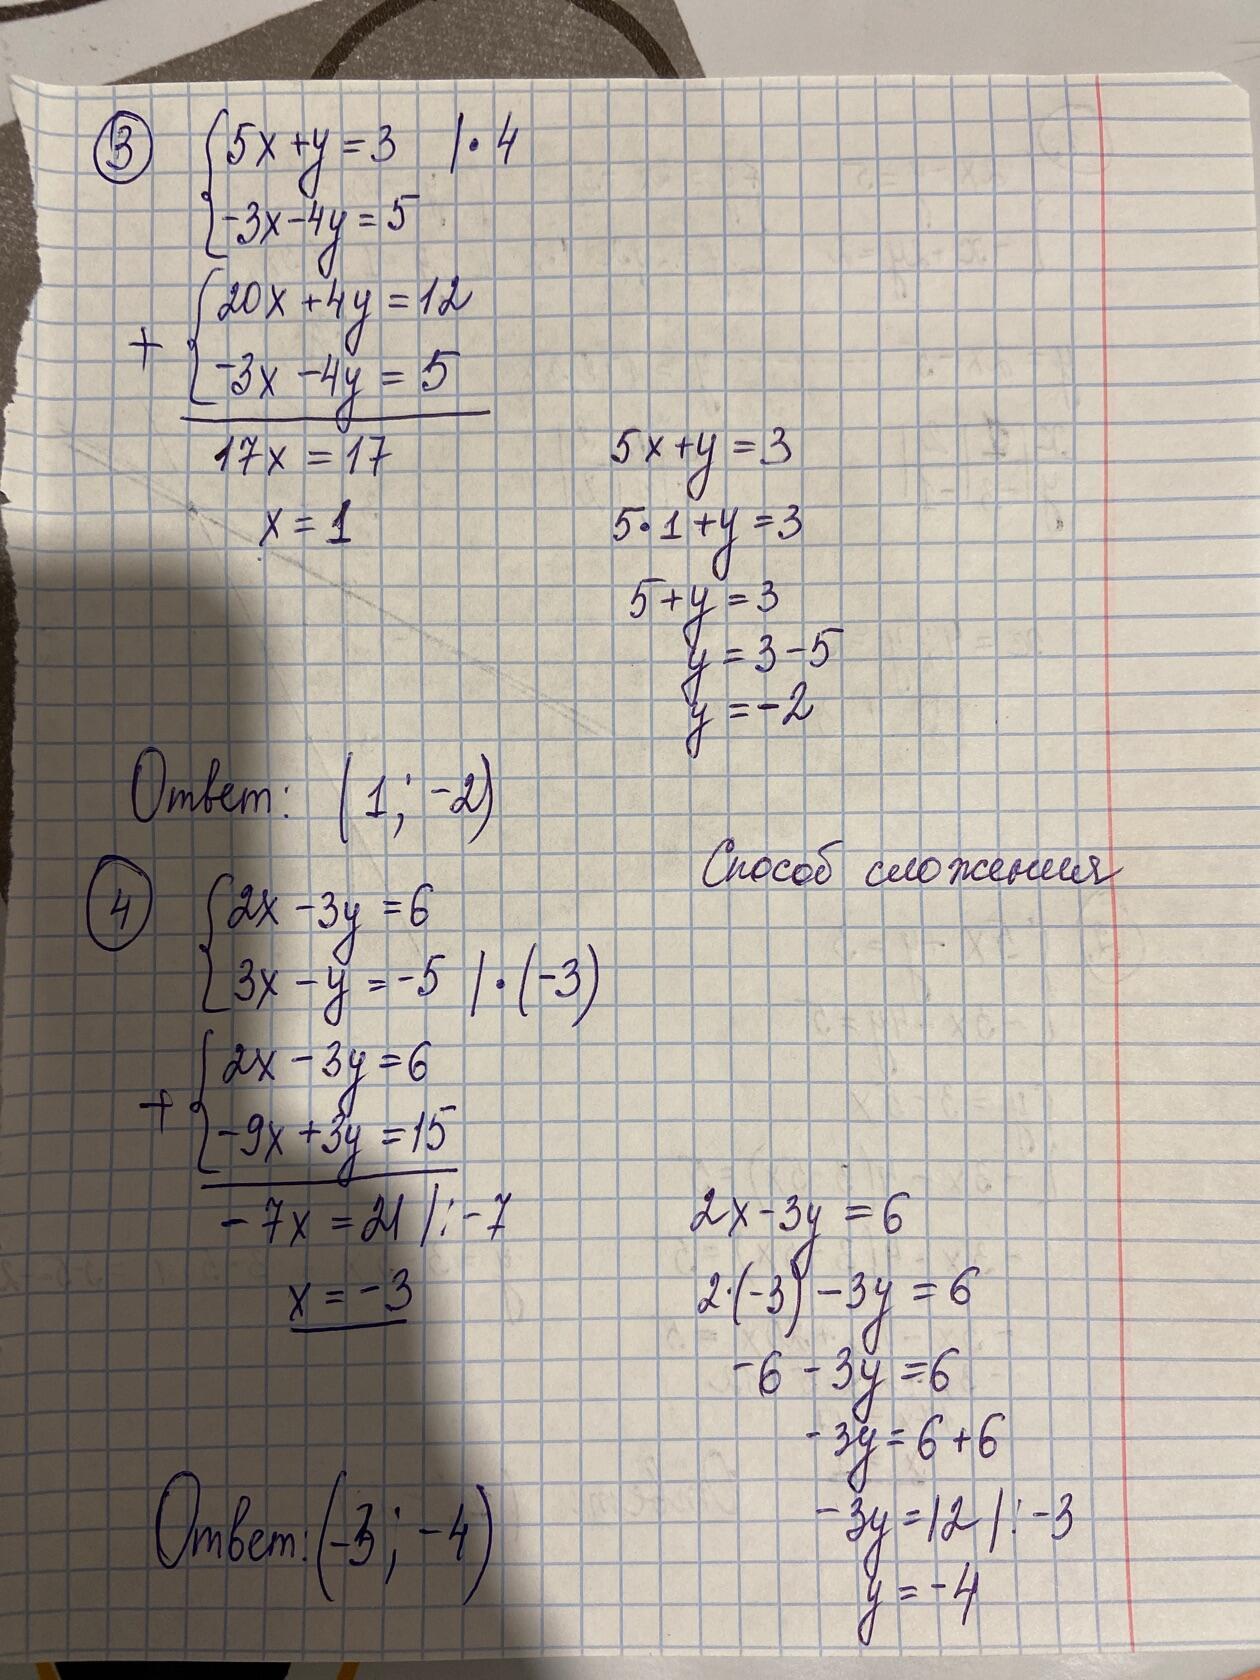 3 5x+y=3 |·4
-3x-4y=5
+ 20x+4y=12
-3x-4y=5
17x=17
x=1
5x+y=3
5·1+y=3
5+y=3
y=3-5
y=-2
Ответ: (1; -2)
Способ сложения
4 2x-3y=6
3x-y=-5 |·(-3)
+ 2x-3y=6
-9x+3y=15
-7x=21 |:-7
x=-3
2x-3y=6
2·(-3)-3y=6
-6-3y=6
-3y=6+6
-3y=12 |:-3
y=-4
Ответ: (-3; -4)